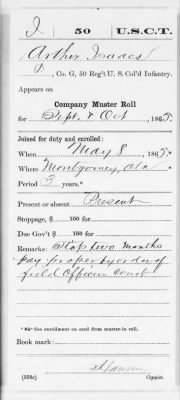 I 50 U.S.C.T.
Arthur Isaacs
P, Co. G, 50 Reg't U. S. Col'd Infantry.
Appears on
Company Muster Roll
for Sept & Oct, 1865.
Joined for duty and enrolled:
When May 8, 1865.*
Where Montgomery, Ala
Period 3 years.*
Present or absent Present
Stoppage, $ 100 for
Due Gov't $ 100 for
Remarks: Stop two months
pay proper by order of
field Officers Court
* See enrollment on card from muster-in roll.
Book mark:
(358c) Copyist.